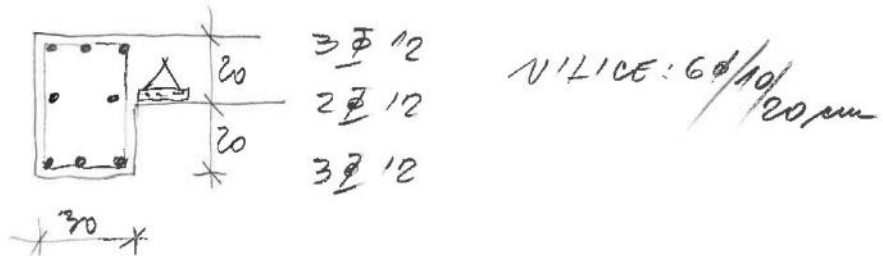 20
20
30
3 Φ 12
2 Φ 12
3 Φ 12
VILICE: 6 Φ/10/20 cm